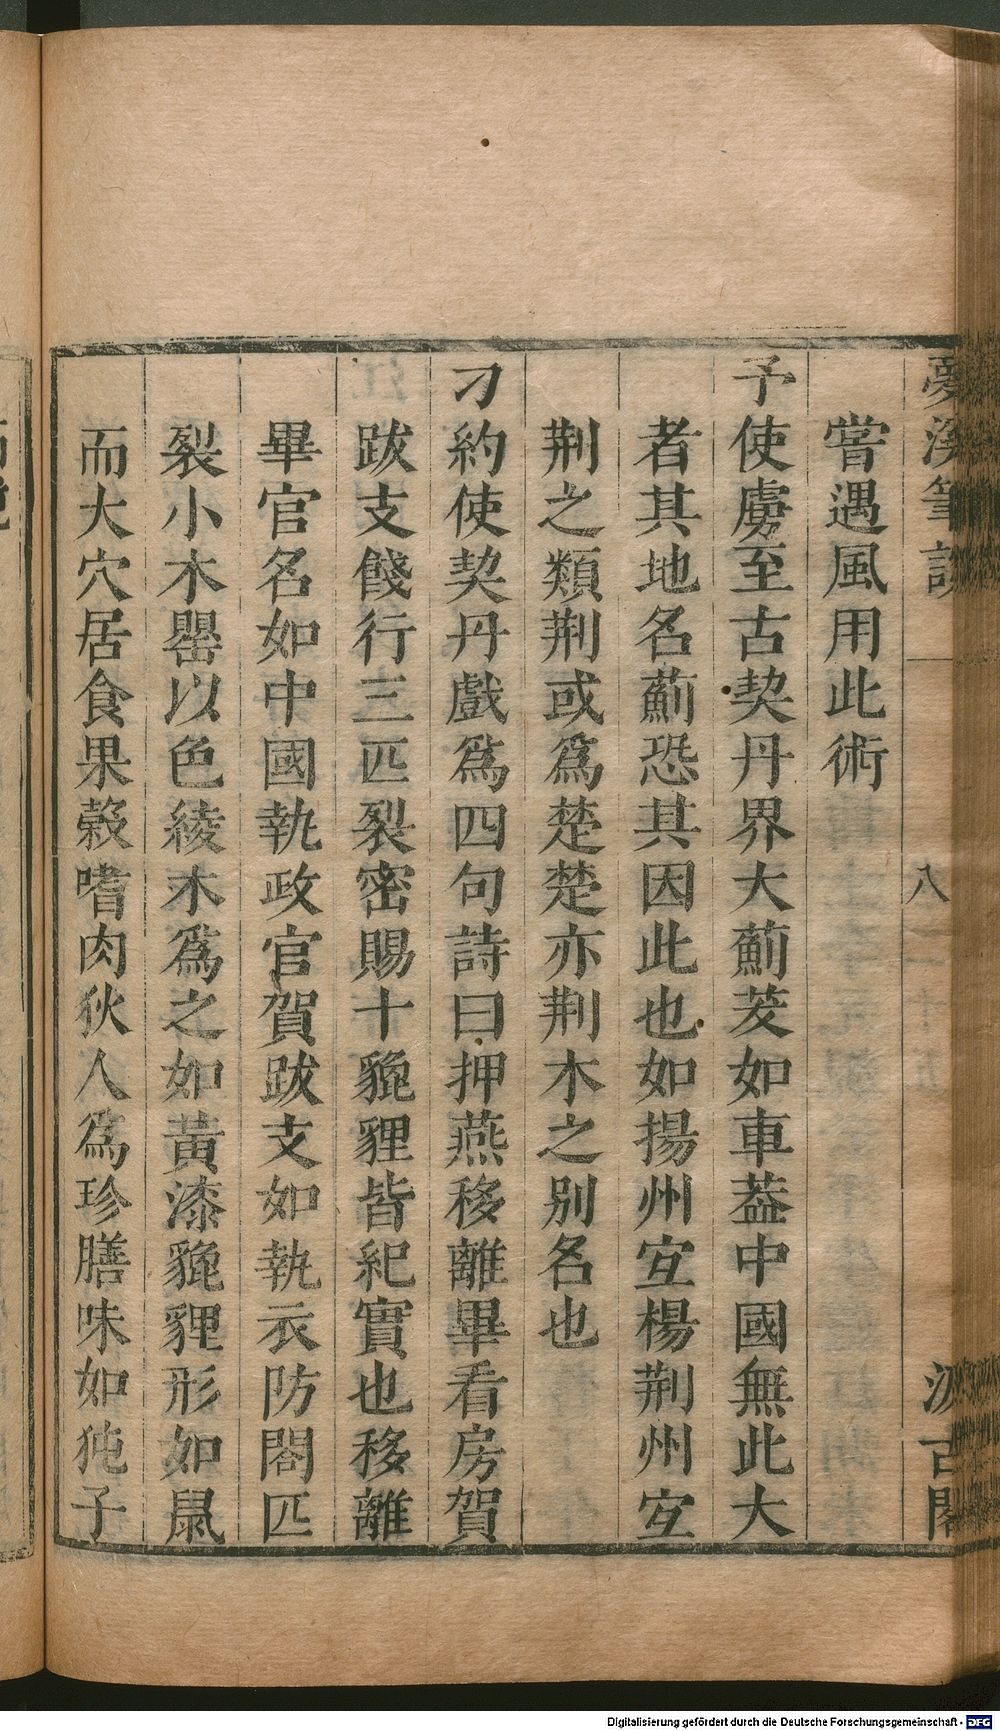 夢溪筆談
八
汲古閣
嘗遇風用此術
予使虜至古契丹界大薊茇如車葢中國無此大
者其地名薊恐其因此也如揚州宐楊荆州宐
荆之類荆或爲楚楚亦荆木之別名也
刁約使契丹戲爲四句詩曰押燕移離畢看房賀
跋支餞行三匹裂密賜十貔貍皆紀實也移離
畢官名如中國執政官賀跋支如執衣防閤匹
裂小木罌以色綾木爲之如黃漆貔貍形如鼠
而大穴居食果榖嗜肉狄人爲珍膳味如㹠子
Digitalisierung gefördert durch die Deutsche Forschungsgemeinschaft - DFG